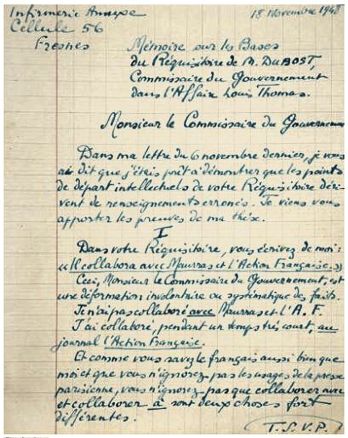 Infirmerie Annexe
Cellule 56
Fresnes
18 Novembre 194
Mémoire sur les Bases
du Réquisitoire de M. DuBOST,
Commissaire du Gouvernement
dans l'Affaire Louis Thomas.
Monsieur le Commissaire du Gouvernement
Dans ma lettre du 6 novembre dernier, je vous
ai dit que j'étais prêt à démontrer que les points
de départ intellectuels de votre Réquisitoire déri-
vent de renseignements erronés. Je viens vous
apporter les preuves de ma thèse.
I
Dans votre Réquisitoire, vous écrivez de moi:
"Il collabora avec Maurras et l'Action Française."
Ceci, Monsieur le Commissaire du Gouvernement, est
une déformation involontaire ou systématique des faits.
Je n'ai pas collaboré avec Maurras et l'A. F.
J'ai collaboré, pendant un temps très court, au
journal l'Action Française.
Et comme vous savez le français aussi bien que
moi et que vous n'ignorez pas les usages de la presse
parisienne, vous n'ignorez pas que collaborer avec
et collaborer à sont deux choses fort
différentes.
(T.S.V.P.)